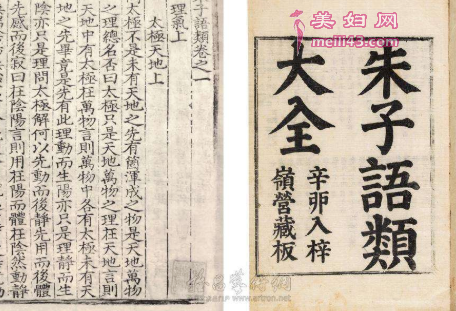 朱子語類
大全
辛卯入梓
嶺營藏板
子語類卷之一
理氣上
太極天地上
太極不是未有天地之先有箇渾成之物是天地萬物
之理總名否曰太極只是天地萬物之理在天地言則
天地中有太極在萬物言則萬物中各有太極未有天
地之先畢竟是先有此理動而生陽亦只是理靜而生
陰亦只是理問太極解何以先動而後靜先用而後體
先感而後寂曰在陰陽言則用在陽而體在陰然動靜
美妇网
meili43.com